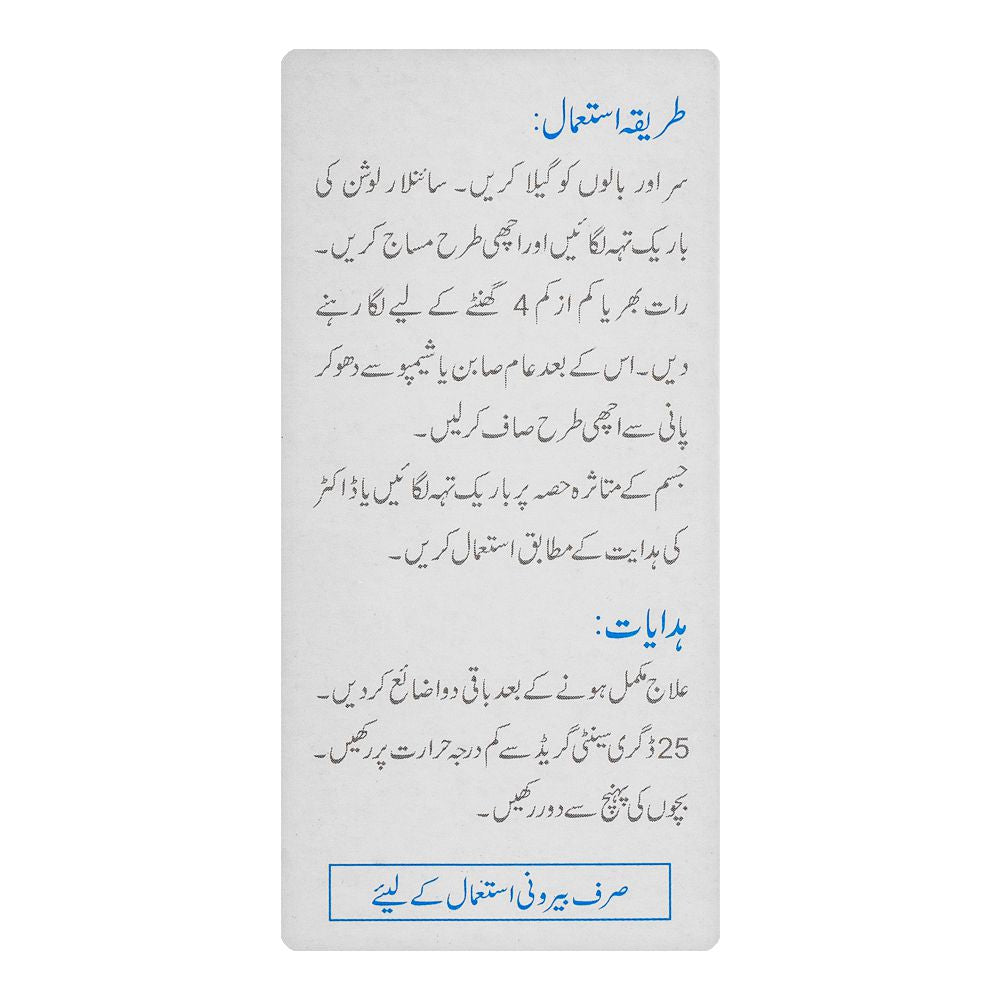 طریقہ استعمال:
سر اور بالوں کو گیلا کریں۔ سائنلار لوشن کی
باریک تہہ لگائیں اور اچھی طرح مساج کریں۔
رات بھر یا کم از کم 4 گھنٹے کے لیے لگا رہنے
دیں۔ اس کے بعد عام صابن یا شیمپو سے دھو کر
پانی سے اچھی طرح صاف کر لیں۔
جسم کے متاثرہ حصہ پر باریک تہہ لگائیں یا ڈاکٹر
کی ہدایت کے مطابق استعمال کریں۔
ہدایات:
علاج مکمل ہونے کے بعد باقی دوا ضائع کر دیں۔
25 ڈگری سینٹی گریڈ سے کم درجہ حرارت پر رکھیں۔
بچوں کی پہنچ سے دور رکھیں۔
صرف بیرونی استعمال کے لیئے